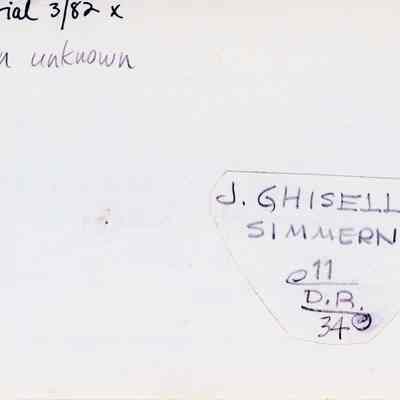 rial 3/82 x
n unknown
J. GHISELL
SIMMERN
11
D.R.
34